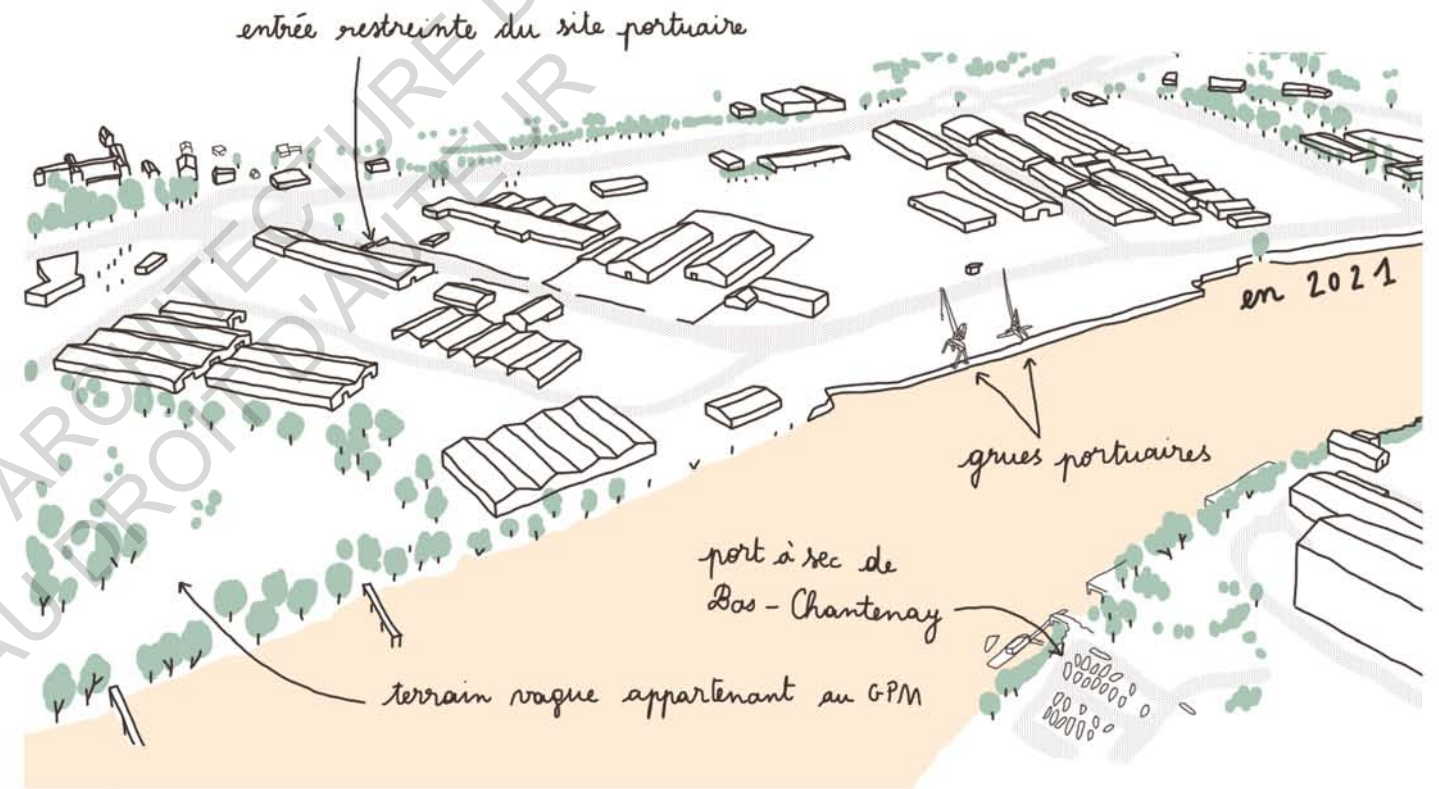 entrée restreinte du site portuaire
en 2021
grues portuaires
port à sec de
Bas-Chantenay
terrain vague appartenant au GPM
ARCHITECTURE D
AU DROIT D'AUTEUR